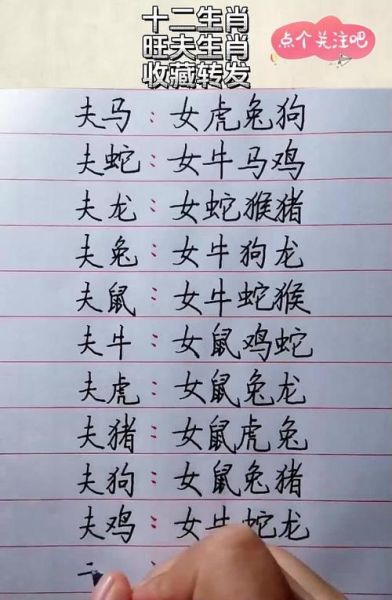 十二生肖
旺夫生肖
收藏转发
点个关注吧
夫马：女虎兔狗
夫蛇：女牛马鸡
夫龙：女蛇猴猪
夫兔：女牛狗龙
夫鼠：女牛蛇猴
夫牛：女鼠鸡蛇
夫虎：女鼠兔龙
夫猪：女鼠虎兔
夫狗：女鼠兔猪
夫鸡：女牛蛇龙